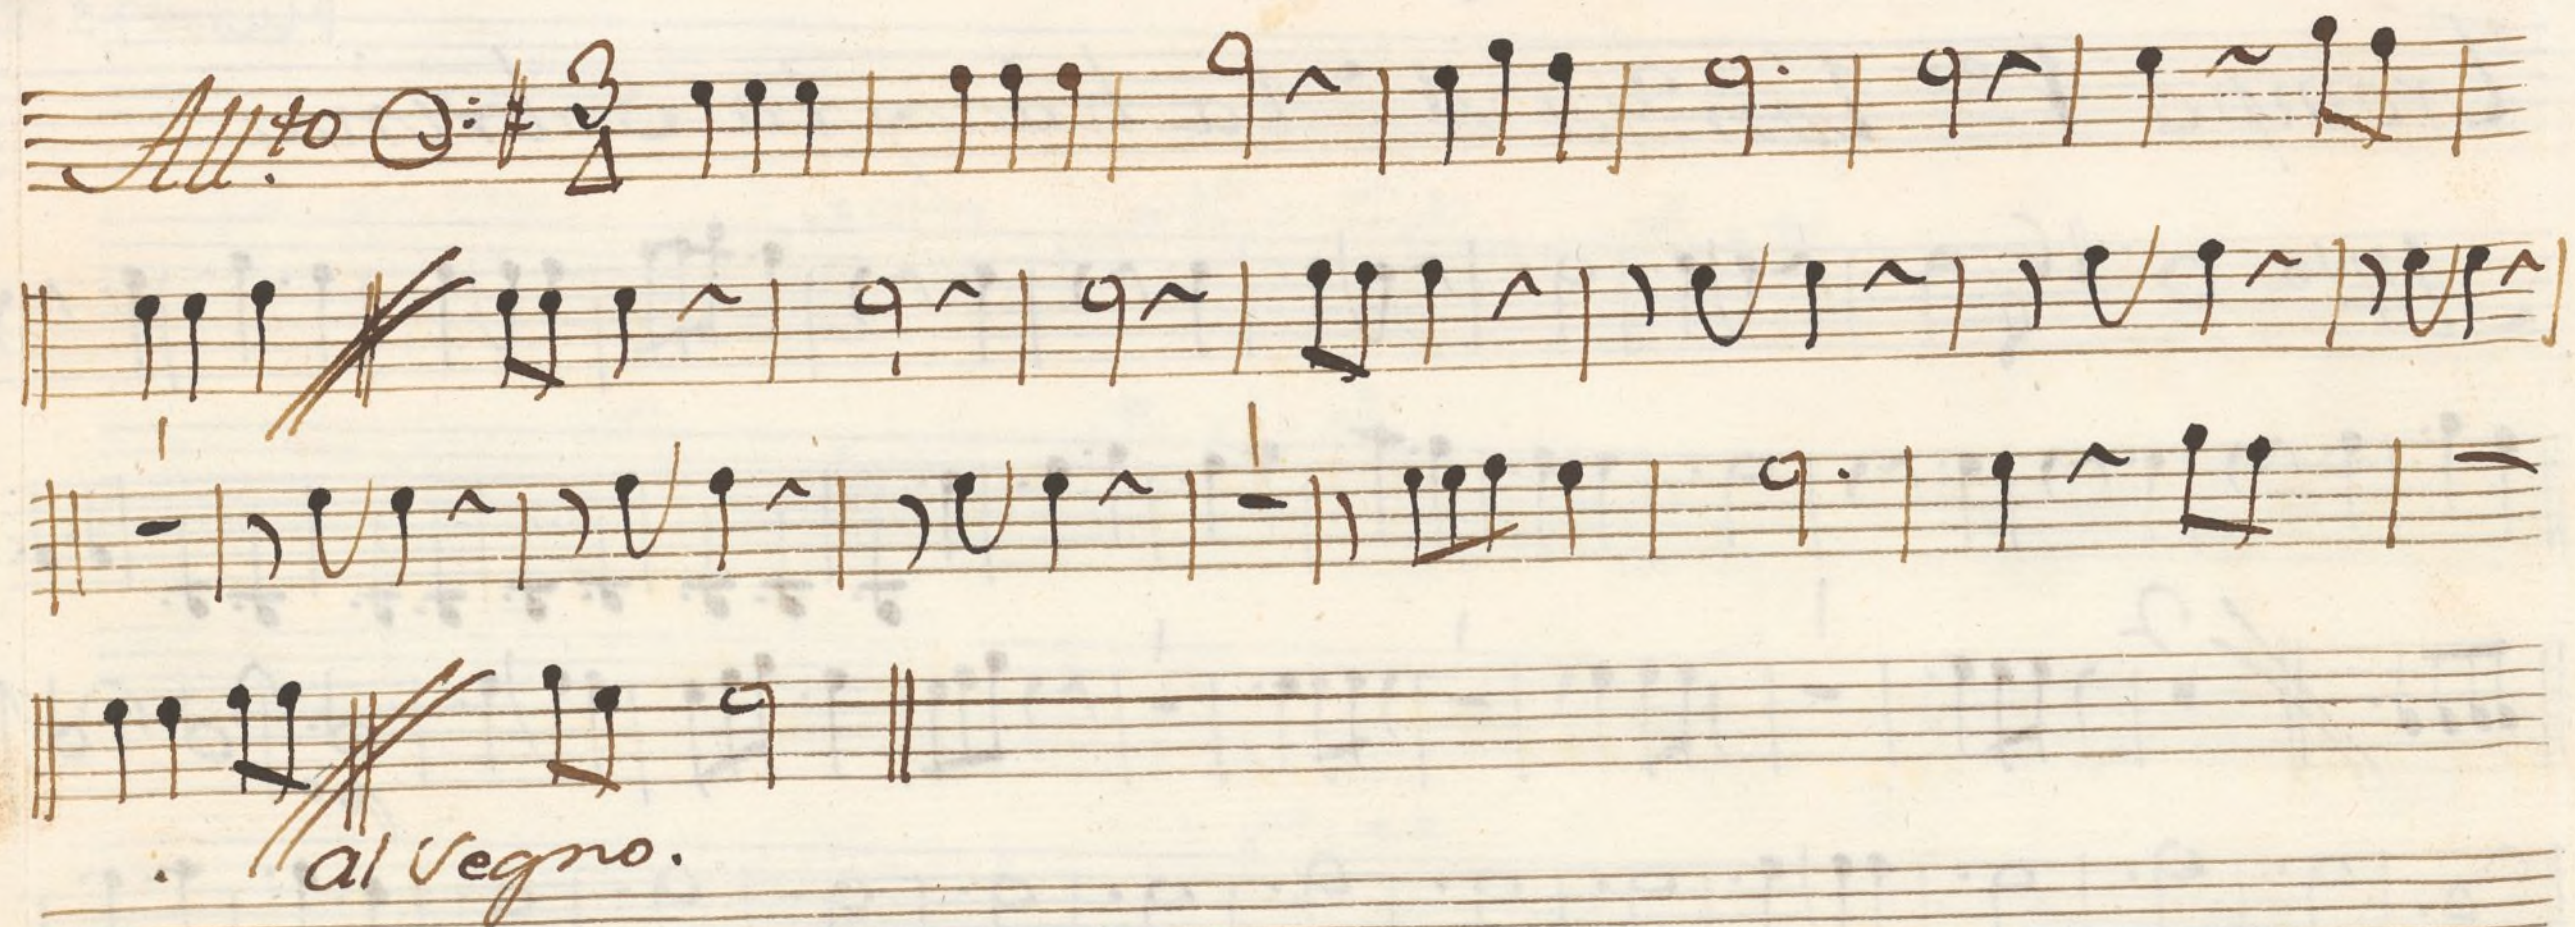 All.to 3/4
1 1
al Segno.